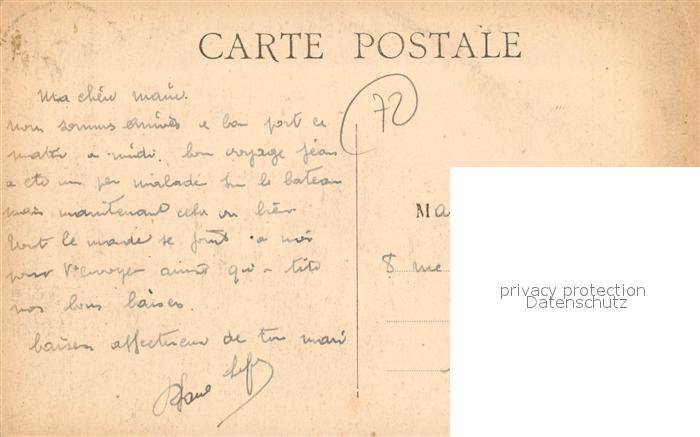 CARTE POSTALE
72
Ma chère
nous sommes arrivés a bon port ce
matin a midi. bon voyage Jean
a été un peu malade sur le bateau
mais maintenant cela va bien
tout le monde se joint a moi
pour t'envoyer ainsi qu'a
nos bons baisers.
baisers affectueux de ton mari
Ma
8 rue
privacy protection
Datenschutz